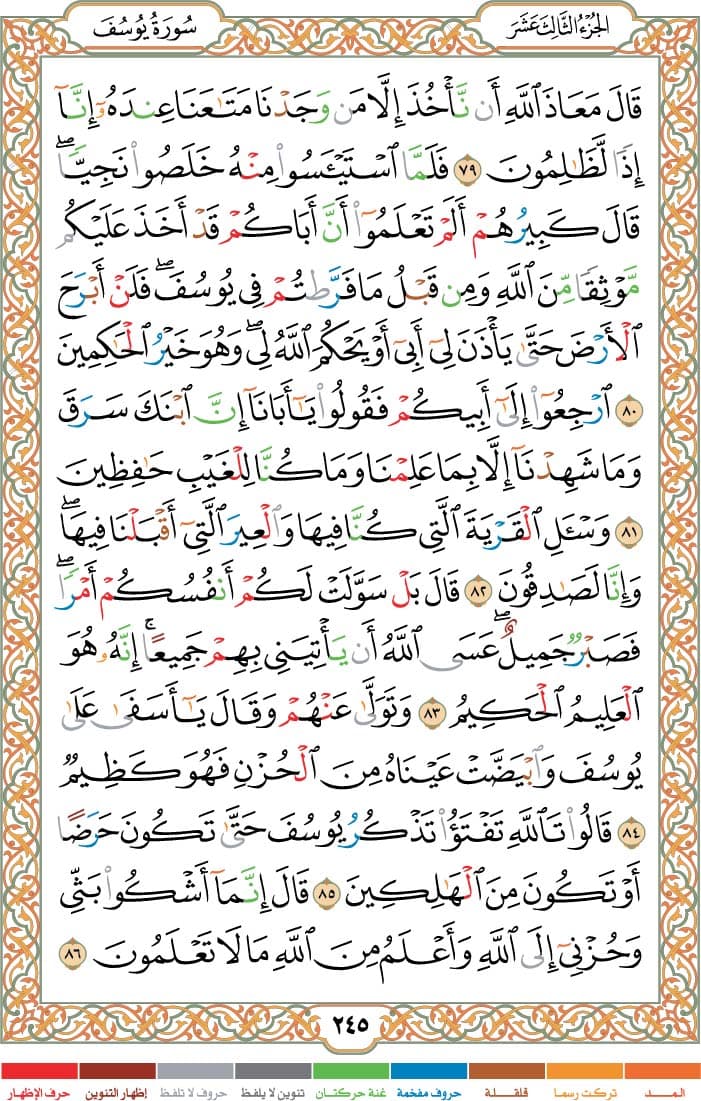 الجُزْءُ الثَّالِثَ عَشَرَ
سُورَةُ يُوسُفَ
قَالَ مَعَاذَ ٱللَّهِ أَن نَّأۡخُذَ إِلَّا مَن وَجَدۡنَا مَتَٰعَنَا عِندَهُۥٓ إِنَّآ
إِذٗا لَّظَٰلِمُونَ ٧٩ فَلَمَّا ٱسۡتَيۡـَٔسُواْ مِنۡهُ خَلَصُواْ نَجِيّٗاۖ
قَالَ كَبِيرُهُمۡ أَلَمۡ تَعۡلَمُوٓاْ أَنَّ أَبَاكُمۡ قَدۡ أَخَذَ عَلَيۡكُم
مَّوۡثِقٗا مِّنَ ٱللَّهِ وَمِن قَبۡلُ مَا فَرَّطتُمۡ فِي يُوسُفَۖ فَلَنۡ أَبۡرَحَ
ٱلۡأَرۡضَ حَتَّىٰ يَأۡذَنَ لِيٓ أَبِيٓ أَوۡ يَحۡكُمَ ٱللَّهُ لِيۖ وَهُوَ خَيۡرُ ٱلۡحَٰكِمِينَ
٨٠ ٱرۡجِعُوٓاْ إِلَىٰٓ أَبِيكُمۡ فَقُولُواْ يَٰٓأَبَانَآ إِنَّ ٱبۡنَكَ سَرَقَ
وَمَا شَهِدۡنَآ إِلَّا بِمَا عَلِمۡنَا وَمَا كُنَّا لِلۡغَيۡبِ حَٰفِظِينَ
٨١ وَسۡـَٔلِ ٱلۡقَرۡيَةَ ٱلَّتِي كُنَّا فِيهَا وَٱلۡعِيرَ ٱلَّتِيٓ أَقۡبَلۡنَا فِيهَاۖ
وَإِنَّا لَصَٰدِقُونَ ٨٢ قَالَ بَلۡ سَوَّلَتۡ لَكُمۡ أَنفُسُكُمۡ أَمۡرٗاۖ
فَصَبۡرٞ جَمِيلٌۖ عَسَى ٱللَّهُ أَن يَأۡتِيَنِي بِهِمۡ جَمِيعًاۚ إِنَّهُۥ هُوَ
ٱلۡعَلِيمُ ٱلۡحَكِيمُ ٨٣ وَتَوَلَّىٰ عَنۡهُمۡ وَقَالَ يَٰٓأَسَفَىٰ عَلَىٰ
يُوسُفَ وَٱبۡيَضَّتۡ عَيۡنَاهُ مِنَ ٱلۡحُزۡنِ فَهُوَ كَظِيمٞ
٨٤ قَالُواْ تَٱللَّهِ تَفۡتَؤُاْ تَذۡكُرُ يُوسُفَ حَتَّىٰ تَكُونَ حَرَضًا
أَوۡ تَكُونَ مِنَ ٱلۡهَٰلِكِينَ ٨٥ قَالَ إِنَّمَآ أَشۡكُواْ بَثِّي
وَحُزۡنِيٓ إِلَى ٱللَّهِ وَأَعۡلَمُ مِنَ ٱللَّهِ مَا لَا تَعۡلَمُونَ ٨٦
٢٤٥
المـــد تركت رسما قلقلة حروف مفخمة غنة حركتان تنوين لا يلفظ حروف لا تلفظ إظهار التنوين حرف الإظهار